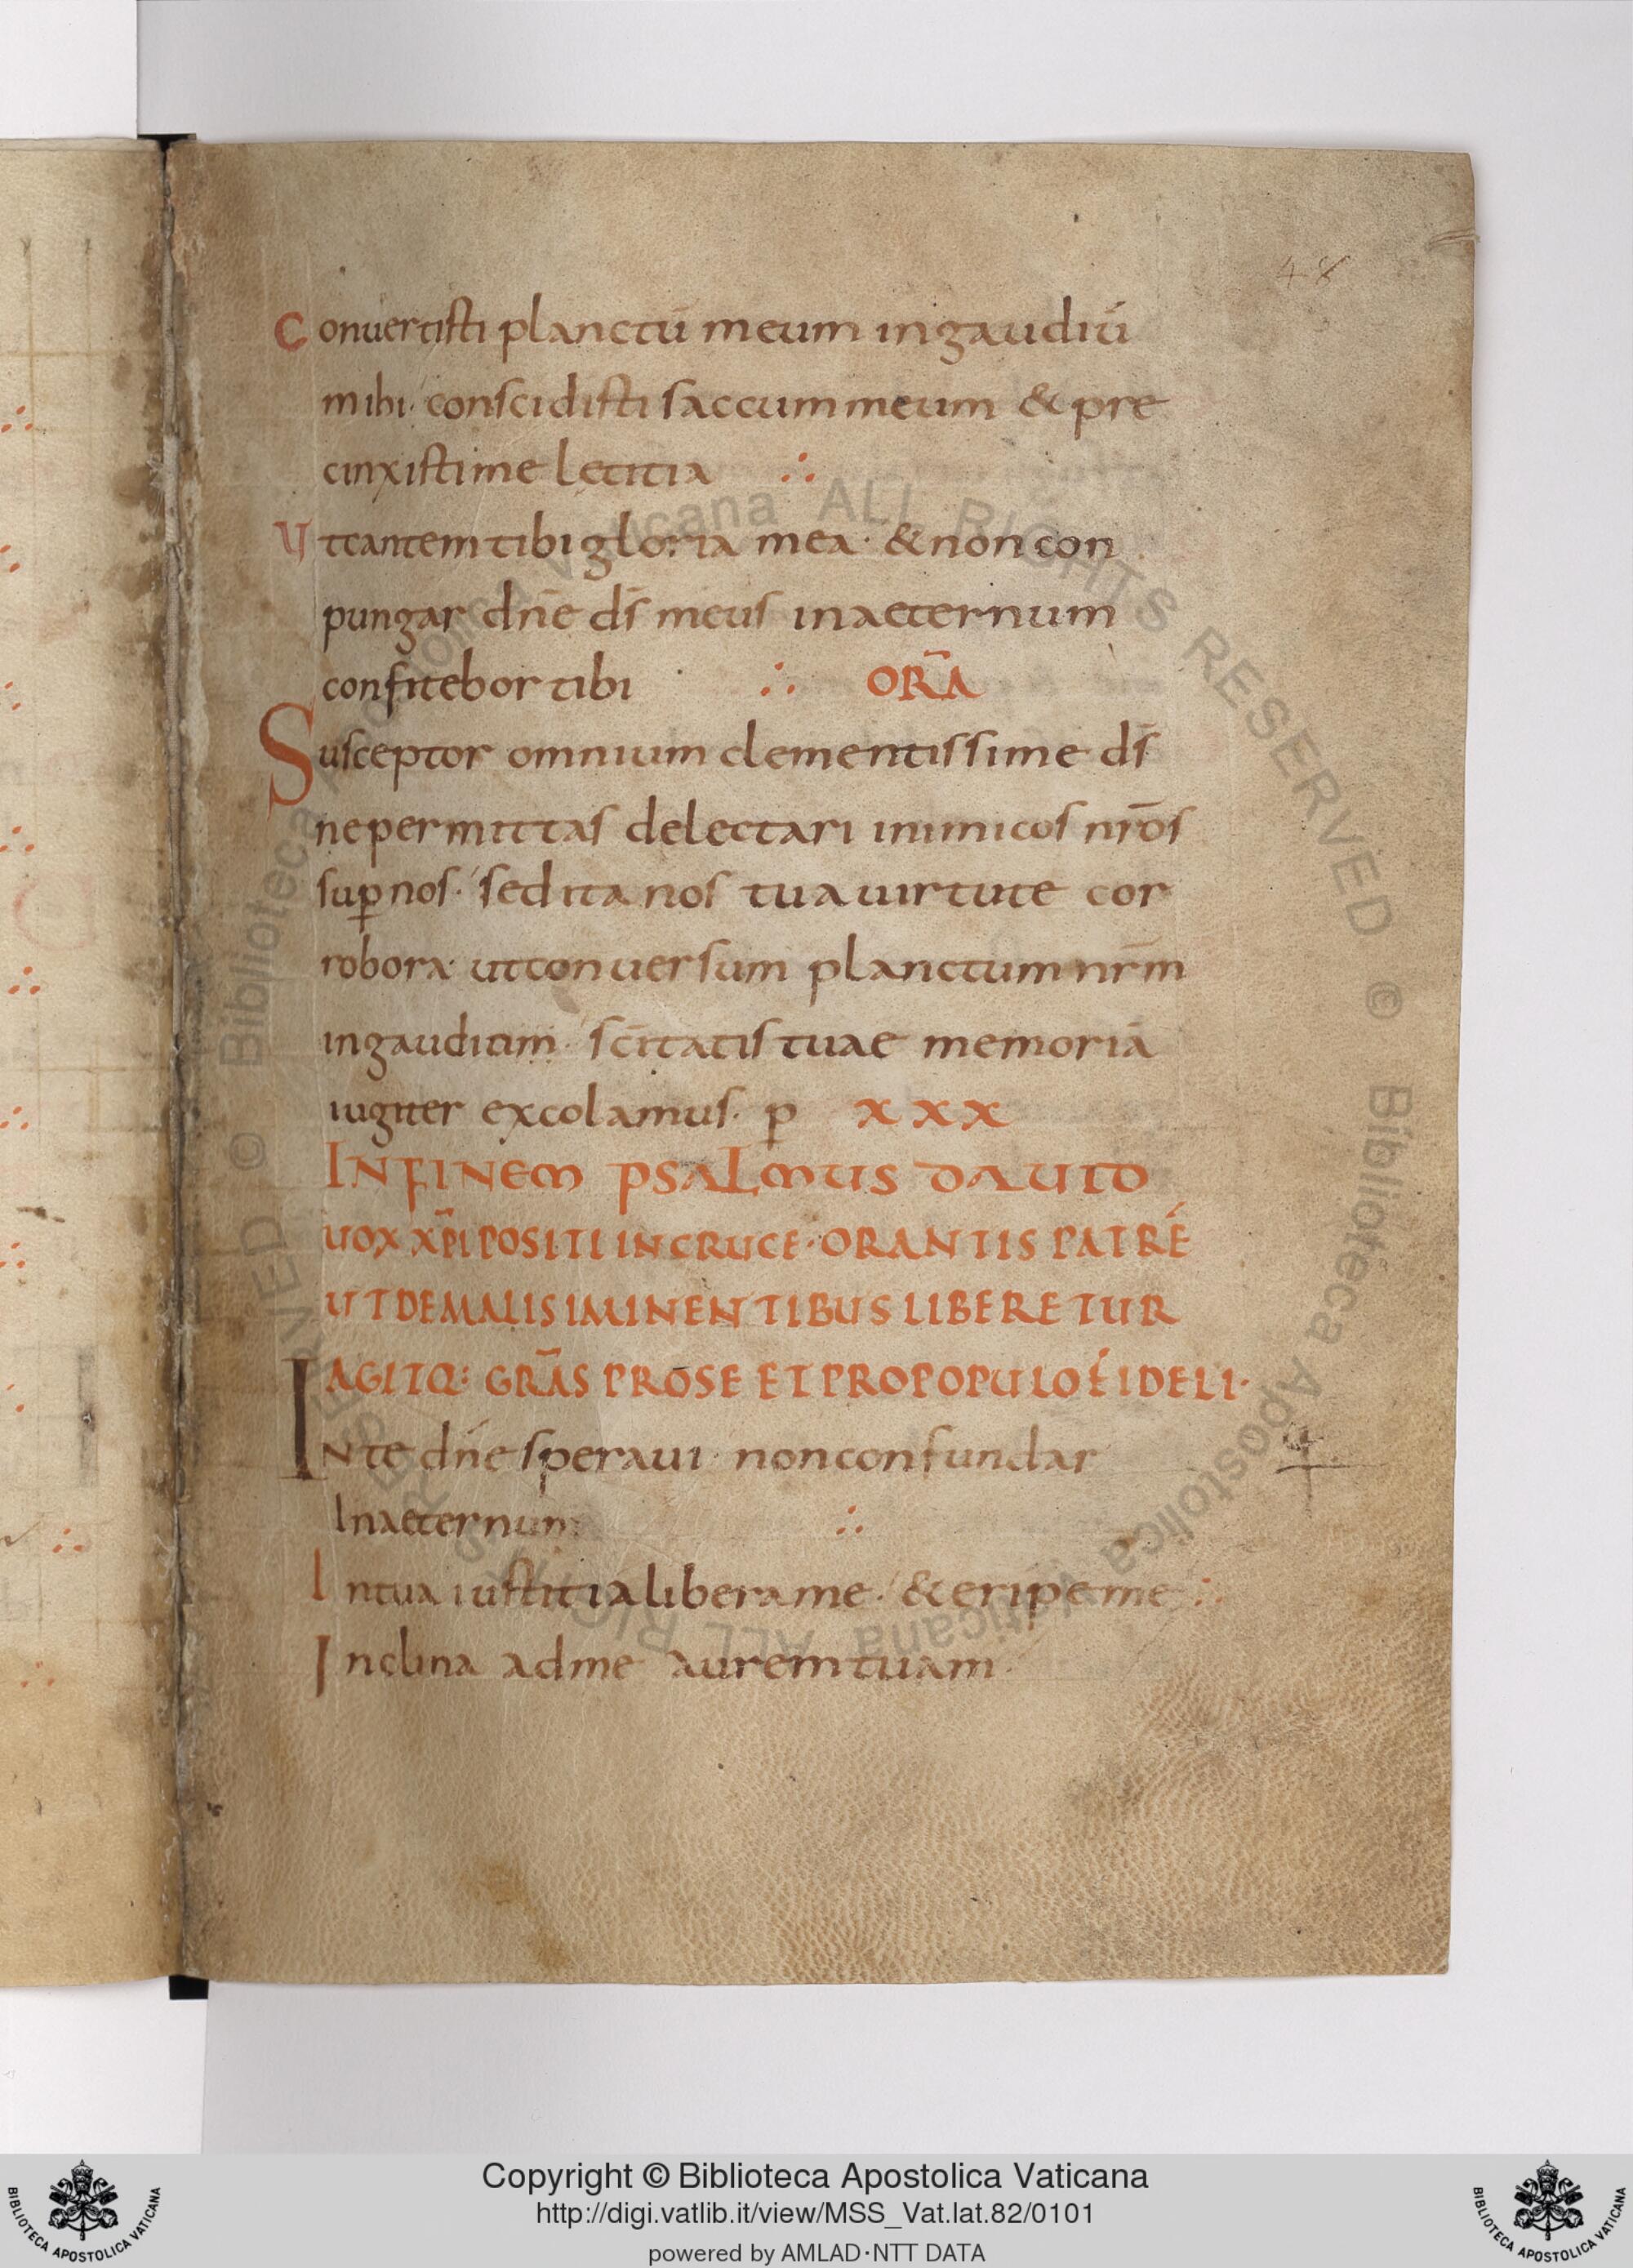 48
Conuertisti planctū meum ingaudiū
mihi· conscidisti saccum meum & pre
cinxisti me letitia ∴
Ut cantem tibi gloria mea· & non con
pungar dn̄e ds̄ meus inaeternum
confitebor tibi ∴ ORA̅
Susceptor omnium clementissime ds̄
ne permittas delectari inimicos nr̄os
suꝑ nos· sed ita nos tua uirtute cor
robora· ut conuersum planctum nr̄m
in gaudium· sc̄itatis tuae memoriā
iugiter excolamus· p XXX
IN FINEM PSALMUS DAUID
UOX XP̄I POSITI IN CRUCE· ORANTIS PATRĒ
UT DE MALIS IMINENTIBUS LIBERETUR
AGITQ: GRA̅S PRO SE ET PRO POPULO FIDELI·
IN te dn̄e speraui· non confundar
Inaeternum ∴
In tua iustitia libera me· & eripe me ∴
Inclina ad me aurem tuam·
© Biblioteca Apostolica Vaticana ALL RIGHTS RESERVED
© Biblioteca Apostolica Vaticana ALL RIGHTS RESERVED
Copyright © Biblioteca Apostolica Vaticana
http://digi.vatlib.it/view/MSS_Vat.lat.82/0101
powered by AMLAD·NTT DATA
BIBLIOTECA APOSTOLICA VATICANA
BIBLIOTECA APOSTOLICA VATICANA